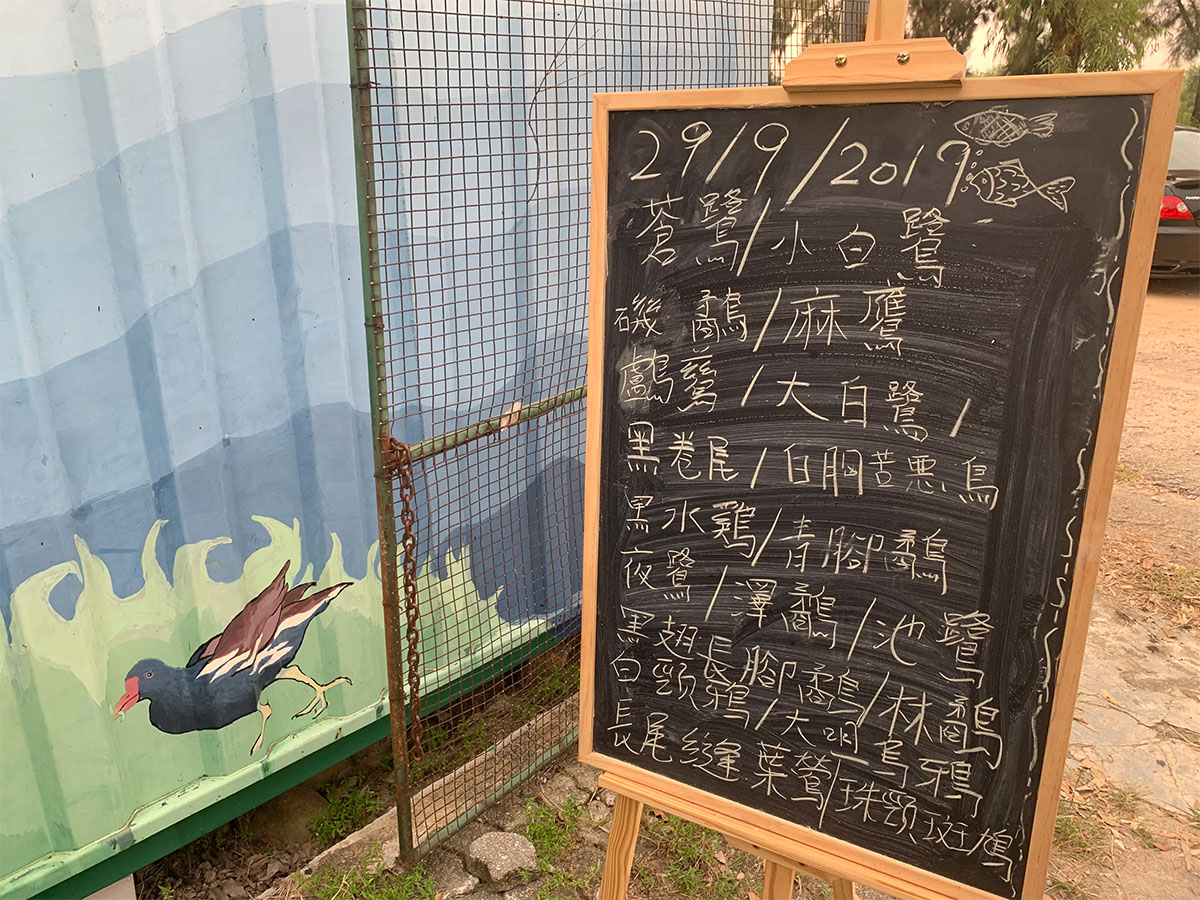 29/9/2019
蒼鷺/小白鷺
磯鷸/麻鷹
鸕鶿/大白鷺/
黑卷尾/白胸苦惡鳥
黑水鷄/青腳鷸
夜鷺/澤鷸/池鷺
黑翅長腳鷸/林鷸
白頸鴉/大嘴烏鴉
長尾縫葉鶯/珠頸斑鳩